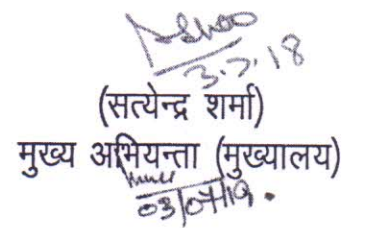 3.7.18
(सत्येन्द्र शर्मा)
मुख्य अभियन्ता (मुख्यालय)
03/07/19.